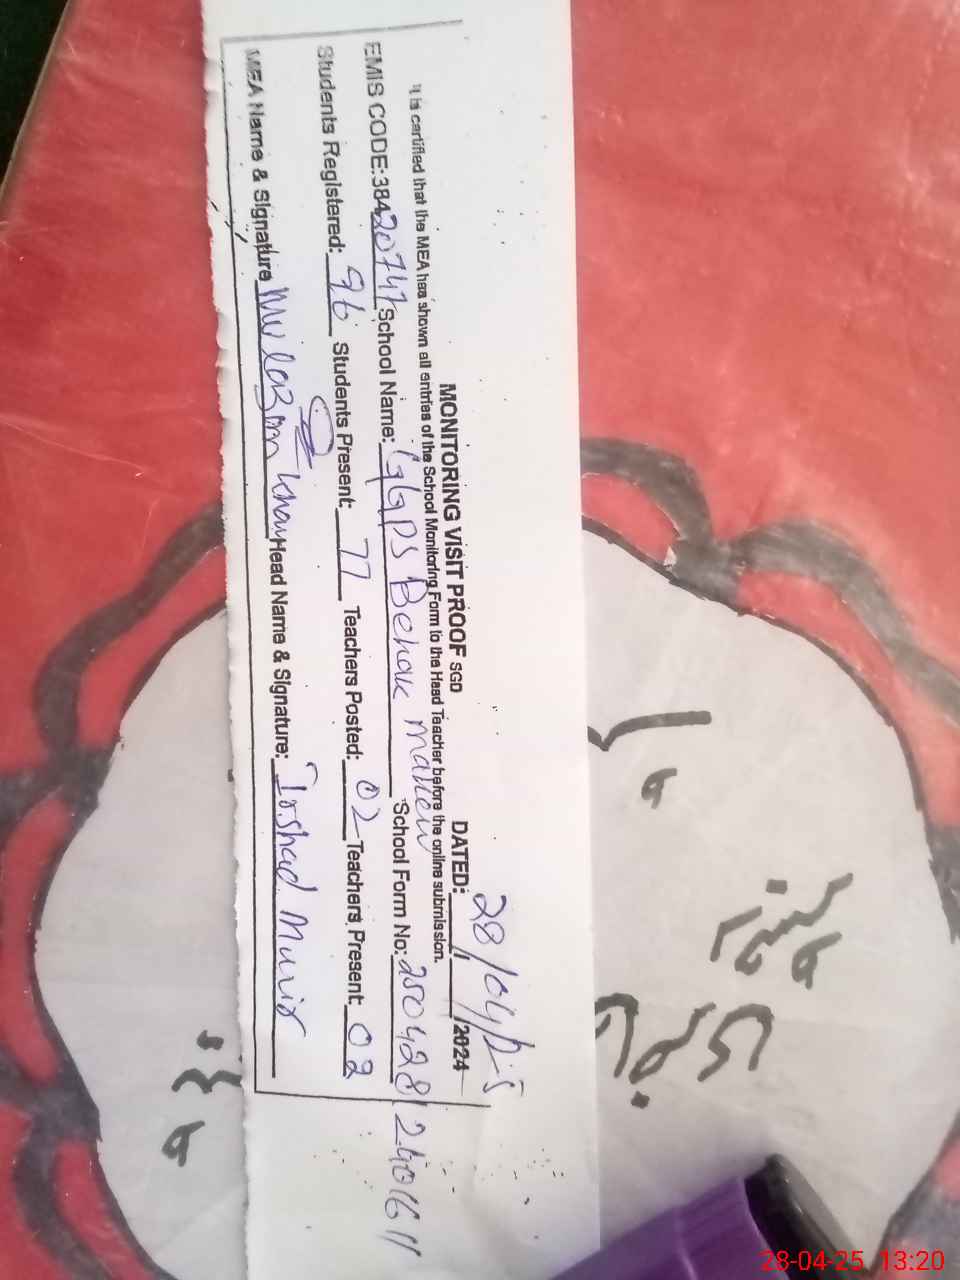 MONITORING VISIT PROOF SGD DATED: 28/04/25 /2024
It is certified that the MEA has shown all entries of the School Monitoring Form to the Head Teacher before the online submission.
EMIS CODE:38420747 School Name: GGPS Behak Maken School Form No: 25042812401611
Students Registered: 96 Students Present: 77 Teachers Posted: 02 Teachers Present: 02
MEA Name & Signature Khan Head Name & Signature: Irshad Munir
28-04-25 13:20